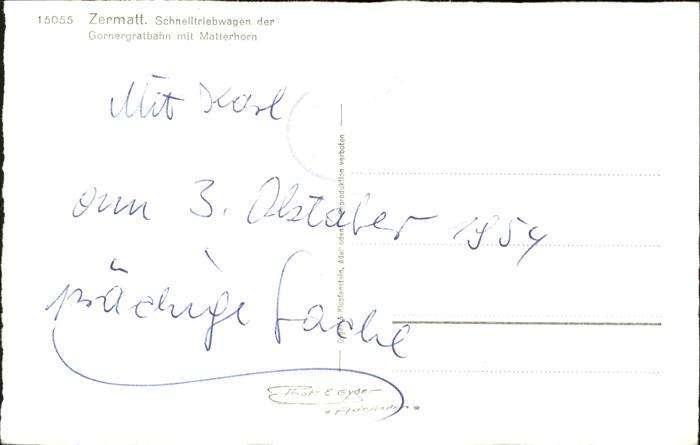 15055 Zermatt. Schnelltriebwagen der
Gornergratbahn mit Matterhorn
Mit Karl
am 3. Oktober 1954
prächige Sache
Klopfenstein, Adelboden Reproduktion verboten
Phot. E. Gyger
Adelboden